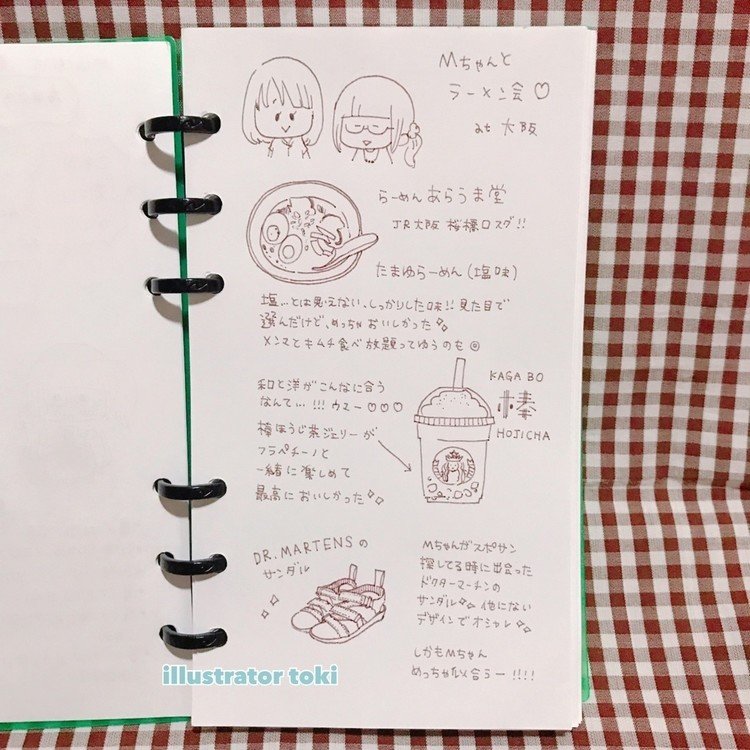 Mちゃんと
ラーメン会♡
at 大阪
らーめん あらうま堂
JR大阪 桜橋口スグ!!
たまゆらーめん(塩味)
塩...とは思えない、しっかりした味!! 見た目で
選んだけど、めっちゃおいしかった
メンマとキムチ食べ放題ってゆうのも◎
和と洋がこんなに合う
なんて...!!! ウマー♡♡♡
棒ほうじ茶ジェリーが
フラペチーノと
一緒に楽しめて
最高においしかった
KAGA BO
棒
HOJICHA
DR.MARTENSの
サンダル
Mちゃんがスポサン
探してる時に出会った
ドクターマーチンの
サンダル 他にない
デザインでオシャレ
しかもMちゃん
めっちゃ似合うー!!!!
illustrator toki